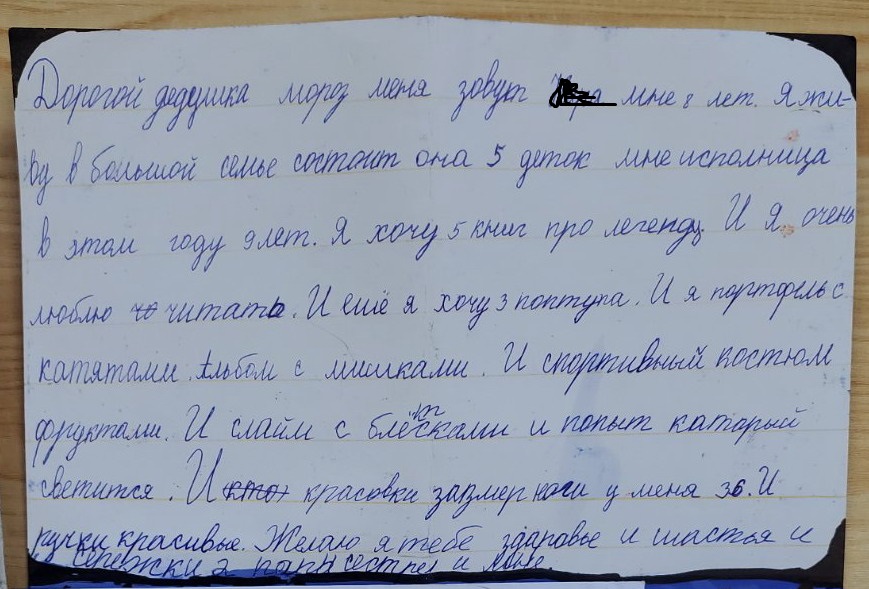 Дорогой дедушка мороз меня зовут мне 8 лет. Я жи-
ву в большой семье состоит она 5 деток мне исполница
в этом году 9 лет. Я хочу 5 книг про легенды. И Я очень
люблю читать. И ещё я хочу 3 поптупа. И я портфель с
катятами. Альбом с мишками. И спортивный костюм
фруктами. И слайм с блёстками и попыт катарый
светится. И красовки зазмер ноги у меня 36. И
ручки красивые. Желаю я тебе здаровье и щастья и
Серёжки 2 пары сестре и мне.